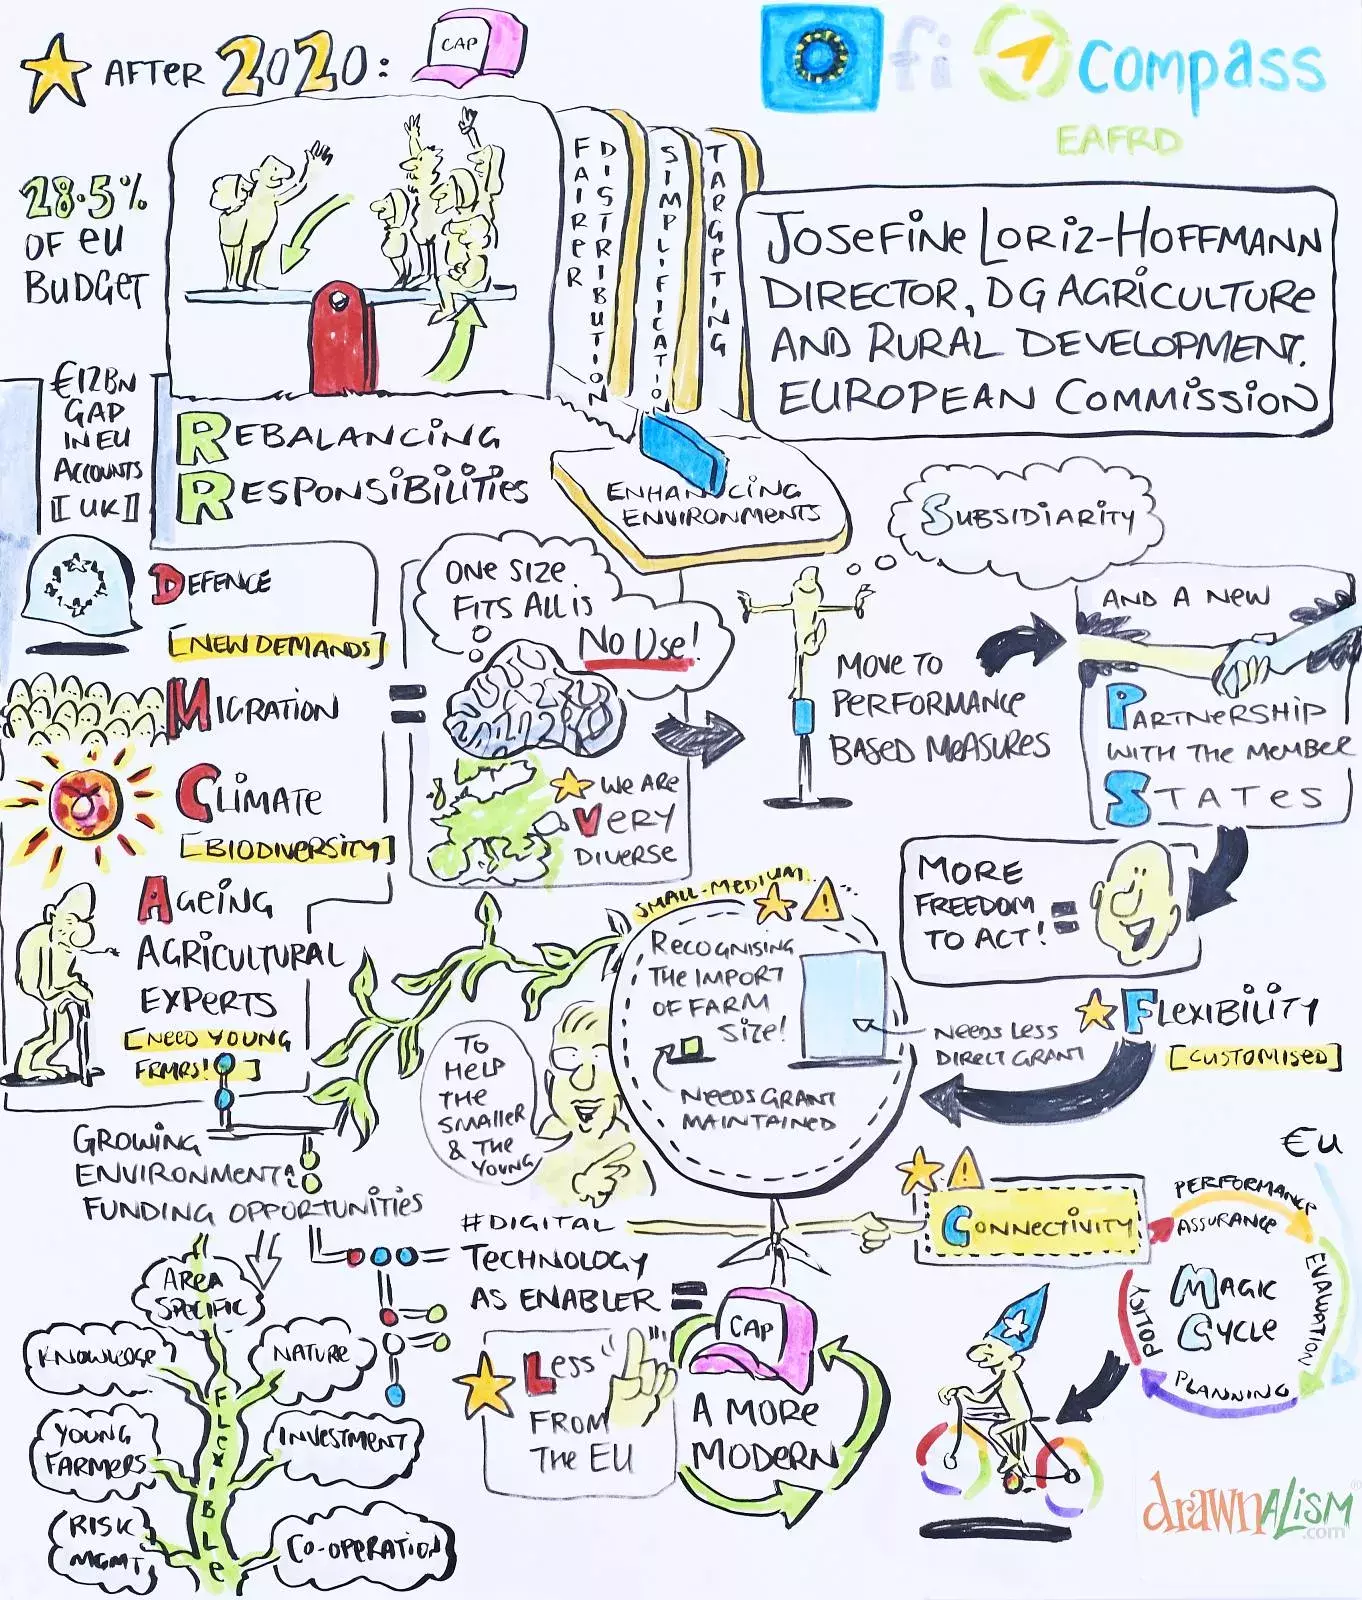 AFTER 2020:
CAP
fi compass
EAFRD
28.5%
OF EU
BUDGET
FAIRER
DISTRIBUTION
SIMPLIFICATION
TARGETING
JOSEFINE LORIZ-HOFFMANN
DIRECTOR, DG AGRICULTURE
AND RURAL DEVELOPMENT.
EUROPEAN COMMISSION
€12BN
GAP
IN EU
ACCOUNTS
[UK]
REBALANCING
RESPONSIBILITIES
ENHANCING
ENVIRONMENTS
SUBSIDIARITY
DEFENCE
[NEW DEMANDS]
MIGRATION
CLIMATE
[BIODIVERSITY]
AGEING
AGRICULTURAL
EXPERTS
[NEED YOUNG
FRMRS!]
=
ONE SIZE
FITS ALL IS
NO USE!
WE ARE
VERY
DIVERSE
MOVE TO
PERFORMANCE
BASED MEASURES
AND A NEW
PARTNERSHIP
WITH THE MEMBER
STATES
MORE
FREEDOM
TO ACT! =
FLEXIBILITY
[CUSTOMISED]
SMALL-MEDIUM
RECOGNISING
THE IMPORT
OF FARM
SIZE!
NEEDS LESS
DIRECT GRANT
NEEDS GRANT
MAINTAINED
TO
HELP
THE
SMALLER
& THE
YOUNG
GROWING
ENVIRONMENTAL
FUNDING OPPORTUNITIES
AREA
SPECIFIC
KNOWLEDGE
NATURE
YOUNG
FARMERS
INVESTMENT
RISK
MGMT
CO-OPERATION
FLEXIBLE
#DIGITAL
TECHNOLOGY
AS ENABLER =
CONNECTIVITY
LESS
FROM
THE EU
CAP
A MORE
MODERN
EU
PERFORMANCE
ASSURANCE
EVALUATION
PLANNING
POLICY
MAGIC
CYCLE
drawnalism
.com